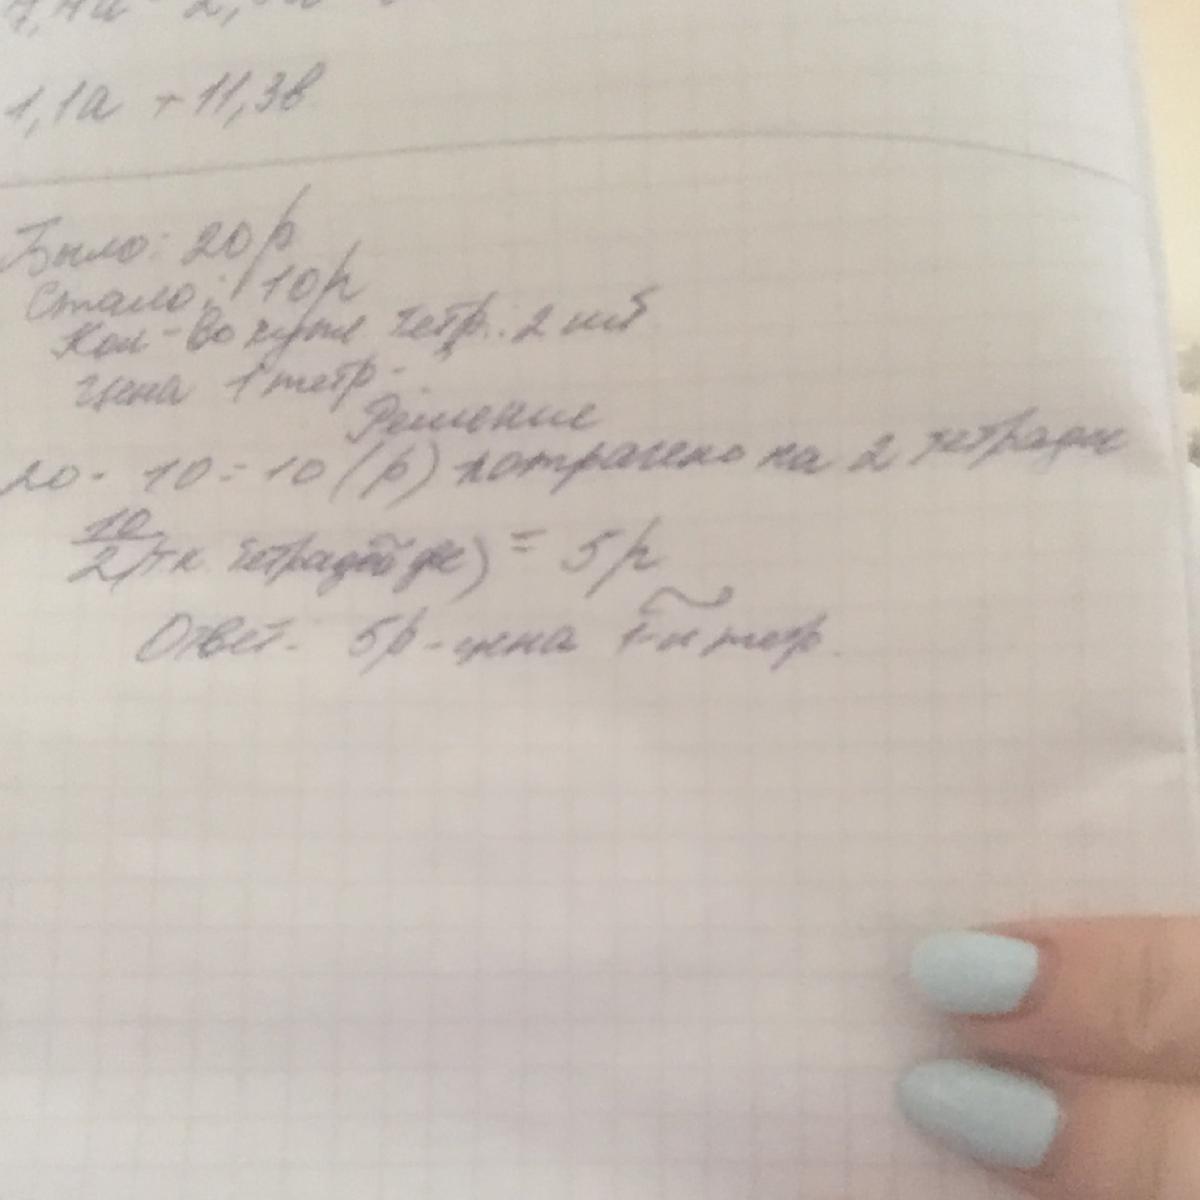 1,1а + 11,3в
Было: 20р
Стало: 10р
Кол-во купл. тетр.: 2 шт
Цена 1 тетр -
Решение
20 - 10 = 10 (р) потрачено на 2 тетради
10
2(т.к тетрадей две) = 5р
Ответ. 5р - цена 1-й тетр.